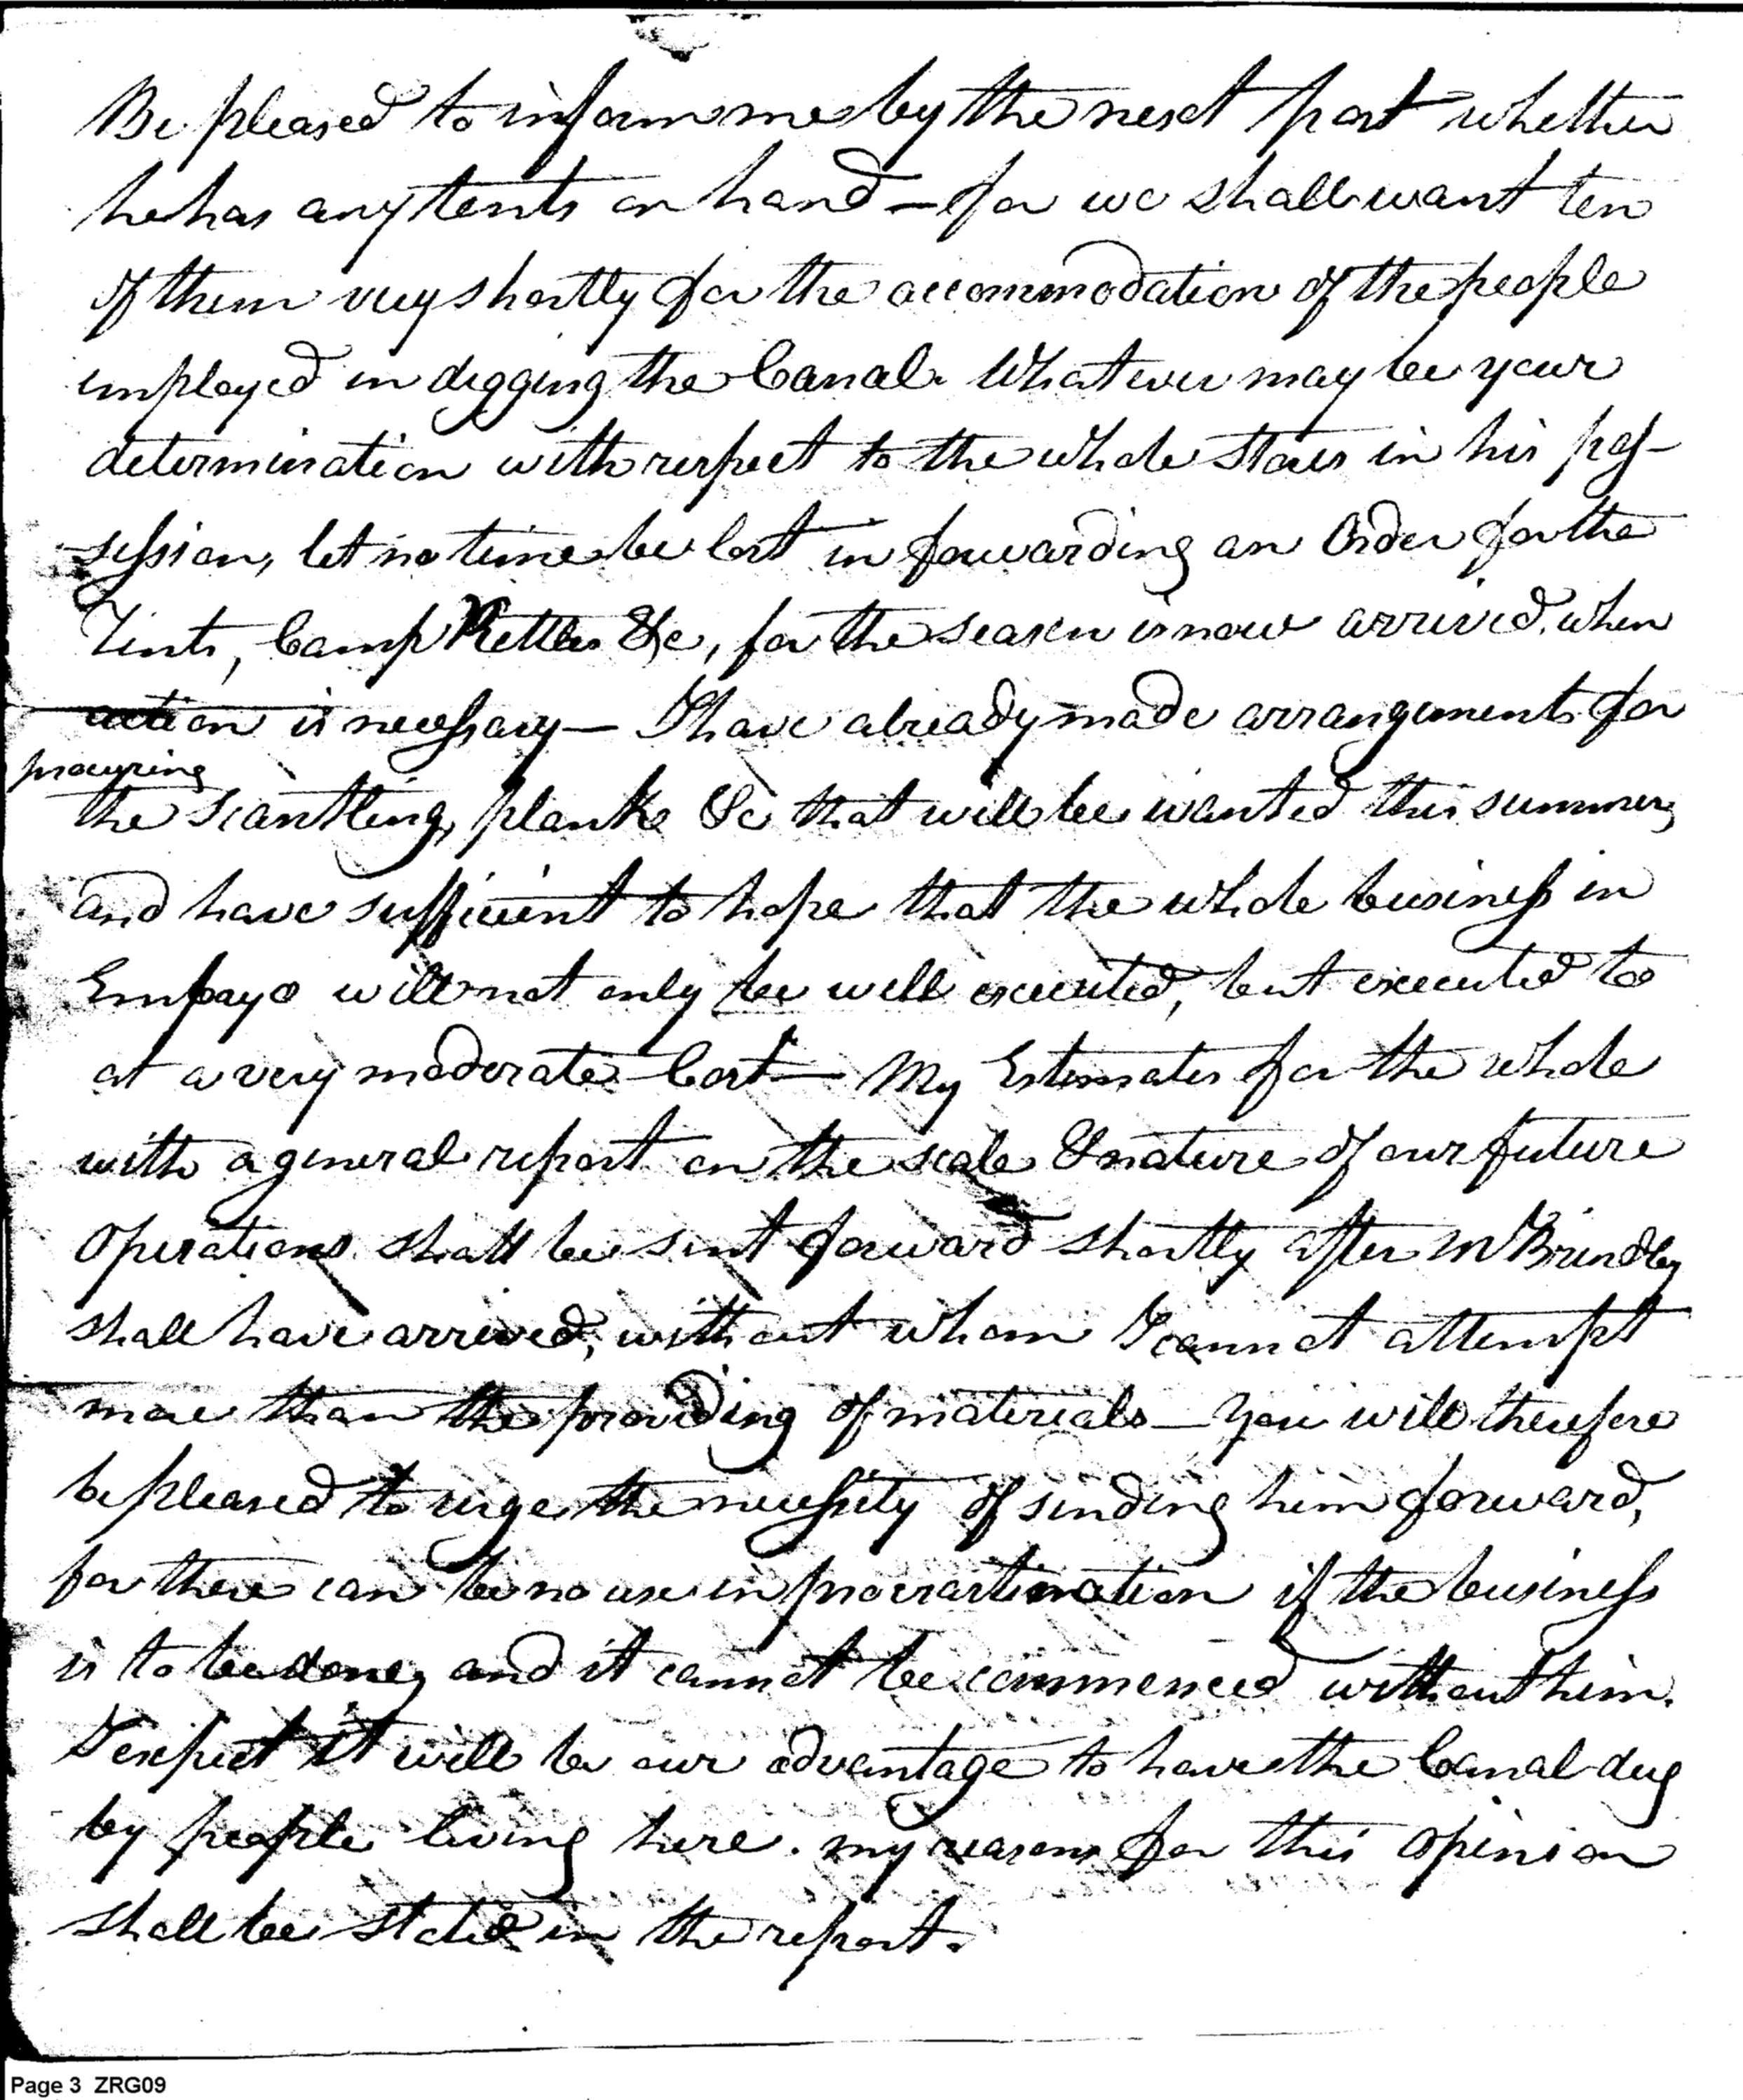 Be pleased to inform me by the next post whether
he has any tents on hand — for we shall want ten
of them very shortly for the accommodation of the people
employed in digging the Canal. Whatever may be your
determination with respect to the whole stores in his pos-
session, let no time be lost in forwarding an Order for the
Tents, Camp Kettles &c, for the season is now arrived when
action is necessary — I have already made arrangements for
procuring
the scantling, planke &c that will be wanted this summer,
and have sufficient to hope that the whole business in
Embryo will not only be well executed, but executed too
at a very moderate Cost — My Estimates for the whole
with a general report on the scale & nature of our future
Operations shall be sent forward shortly after Mr Brindley
shall have arrived, without whom I cannot attempt
more than the providing of materials — You will therefore
be pleased to urge the necessity of sending him forward,
for there can be no use in procrastination if the business
is to be done, and it cannot be commenced without him.
I expect it will be our advantage to have the Canal dug
by people living here. my reasons for this opinion
shall be stated in the report.
Page 3 ZRG09